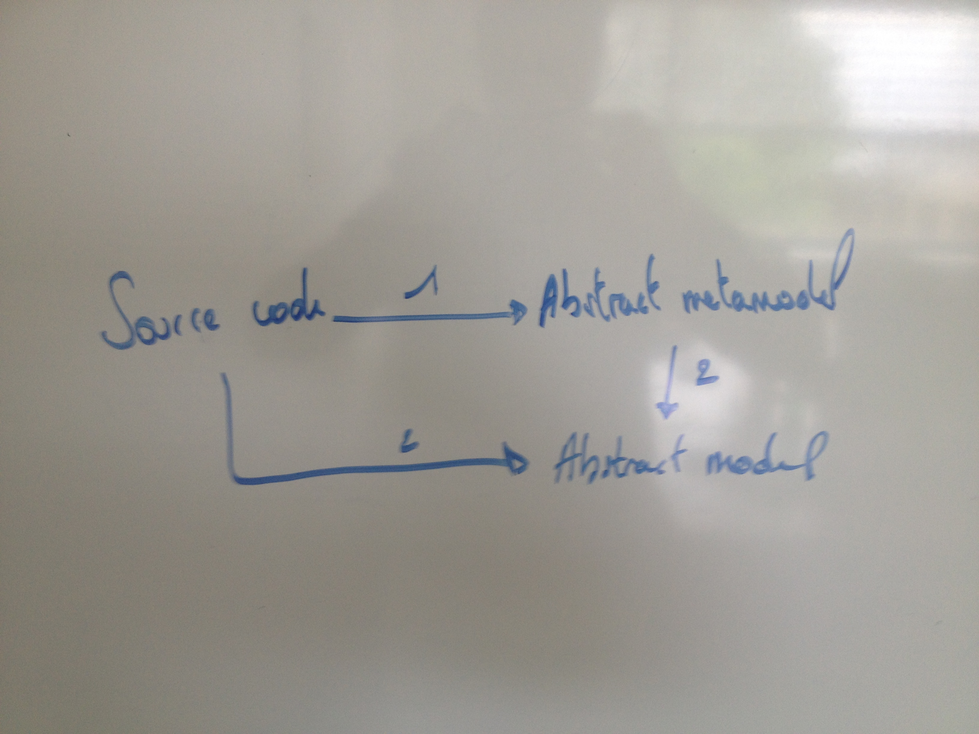 1
Source code Abstract metamodel
2
2
Abstract model